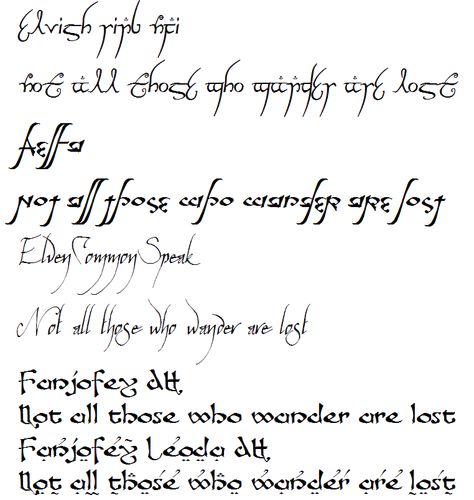 Elvish ring nfi
not all those who wander are lost
Aelfa
not all those who wander are lost
ElvenCommonSpeak
Not all those who wander are lost
Fanjofey AH
Not all those who wander are lost
Fanjofey Leoda AH
Not all those who wander are lost